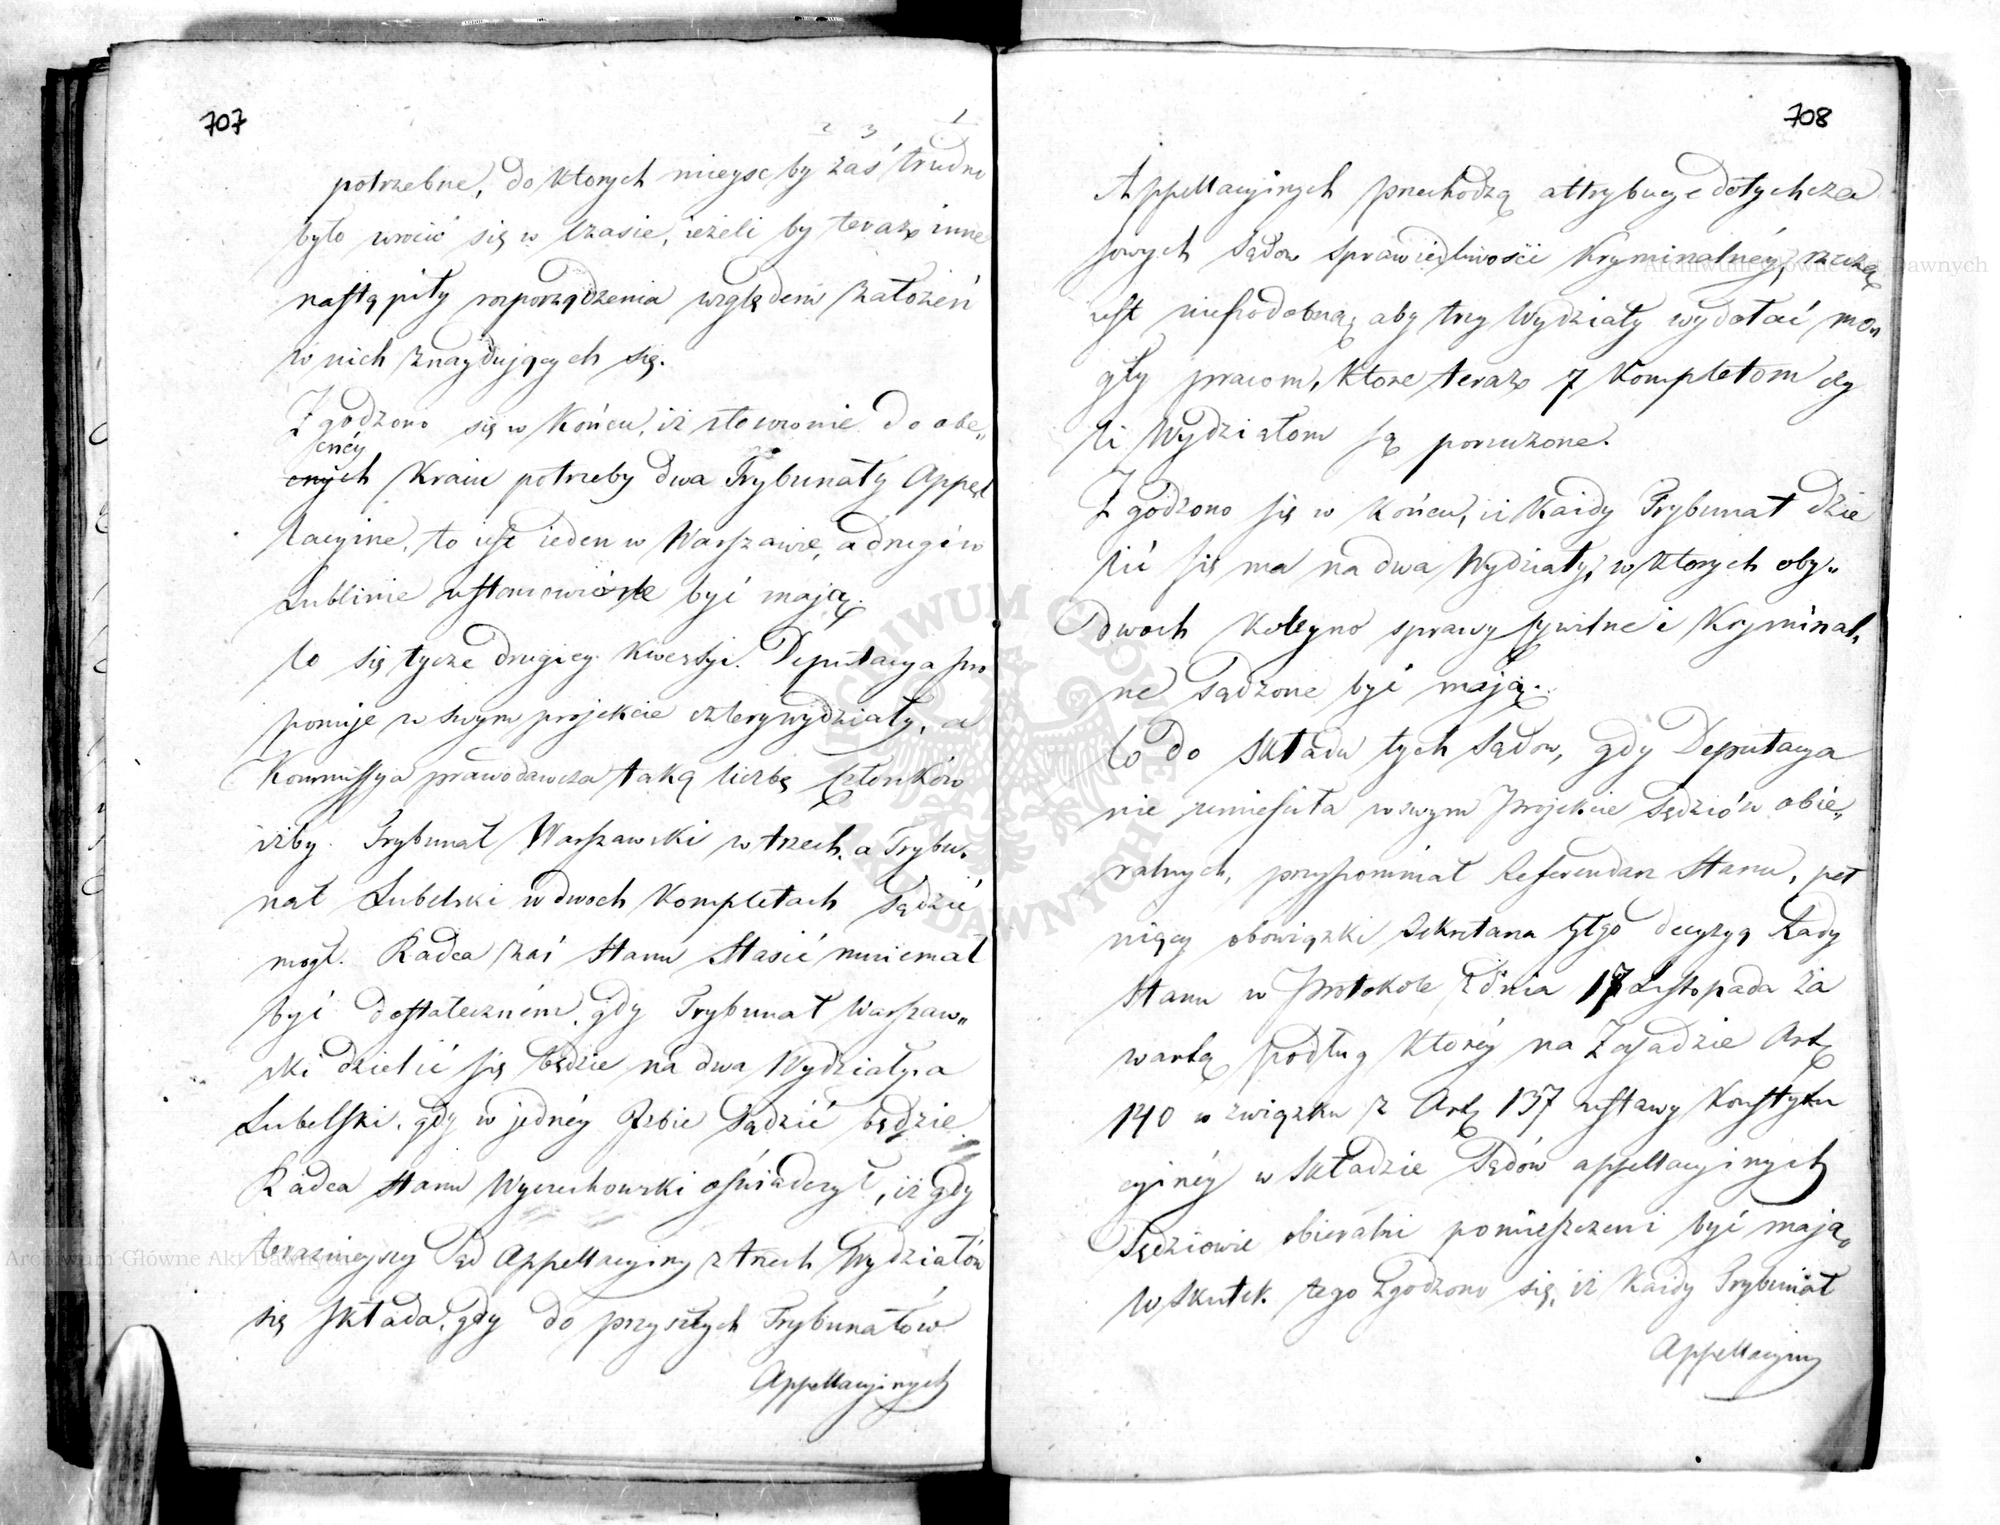 707
2 3 1
potrzebne, do ktorych mieysc by zaś trudno
było wrócić się w czasie, ieżeli by teraz inne
nastąpiły rozporządzenia względem założeń
w nich znayduiących się.
Zgodzono się w końcu, iż stosownie do obe„
cnéy
cnych kraiu potrzeby dwa Trybunały Appel
lacyine, to iest ieden w Warszawie, a drugi w
Lublinie ustanowione być maią.
Co się tycze drugiey kwestyi. Deputacya pro
ponuje w swym projekcie cztery wydziały, a
Kommissya prawodawcza taką liczbę Członków
iżby Trybunał Warszawski w trzech, a Trybu„
nał Lubelski w dwoch kompletach sądzić
mogł. Radca zaś Stanu Stasic mniemał
być dostateczném, gdy Trybunał Warszaw„
ski dzielić się będzie na dwa Wydziały, a
Lubelski, gdy w jednéy Izbie sądzić będzie.
Radca Stanu Wyczechowski oświadczył, iż gdy
teraznieyszy Sąd Appellacyiny z trzech Wydziałów
się składa, gdy do przyszłych Trybunałów
Appellacyinych
708
Appellacyinych przechodzą attrybucye dotychcza
sowych Sądow Sprawiedliwości Kryminalnéy, rzeczą
iest niepodobną, aby trzy Wydziały wydołać mo„
gły pracom, ktore teraz 7 kompletom czy
li Wydziałom są poruczone.
Zgodzono się w końcu, iż każdy Trybunał dzie
lić się ma na dwa Wydziały, w ktorych oby„
dwoch koleyno sprawy cywilne i kryminal„
ne sądzone być maią.
Co do składu tych Sądow, gdy Deputacya
nie umieściła w swym Projekcie Sędziów obie„
ralnych, przypominał Referendarz Stanu, peł
niący obowiązki Sekretarza tego decyzyą Rady
Stanu w Protokole z dnia 17 Listopada za
wartą, podług któréy na Zasadzie Art.
140 w związku z Art. 137 ustawy Konstytu
cyinéy w składzie Sądów appellacyinych
Sędziowie obieralni pomieszczeni być maią.
W skutek tego zgodzono się, iż każdy Trybunał
Appellacyiny
Archiwum Główne Akt Dawnych
Archiwum Główne Akt Dawnych
ARCHIWUM GŁÓWNE AKT DAWNYCH